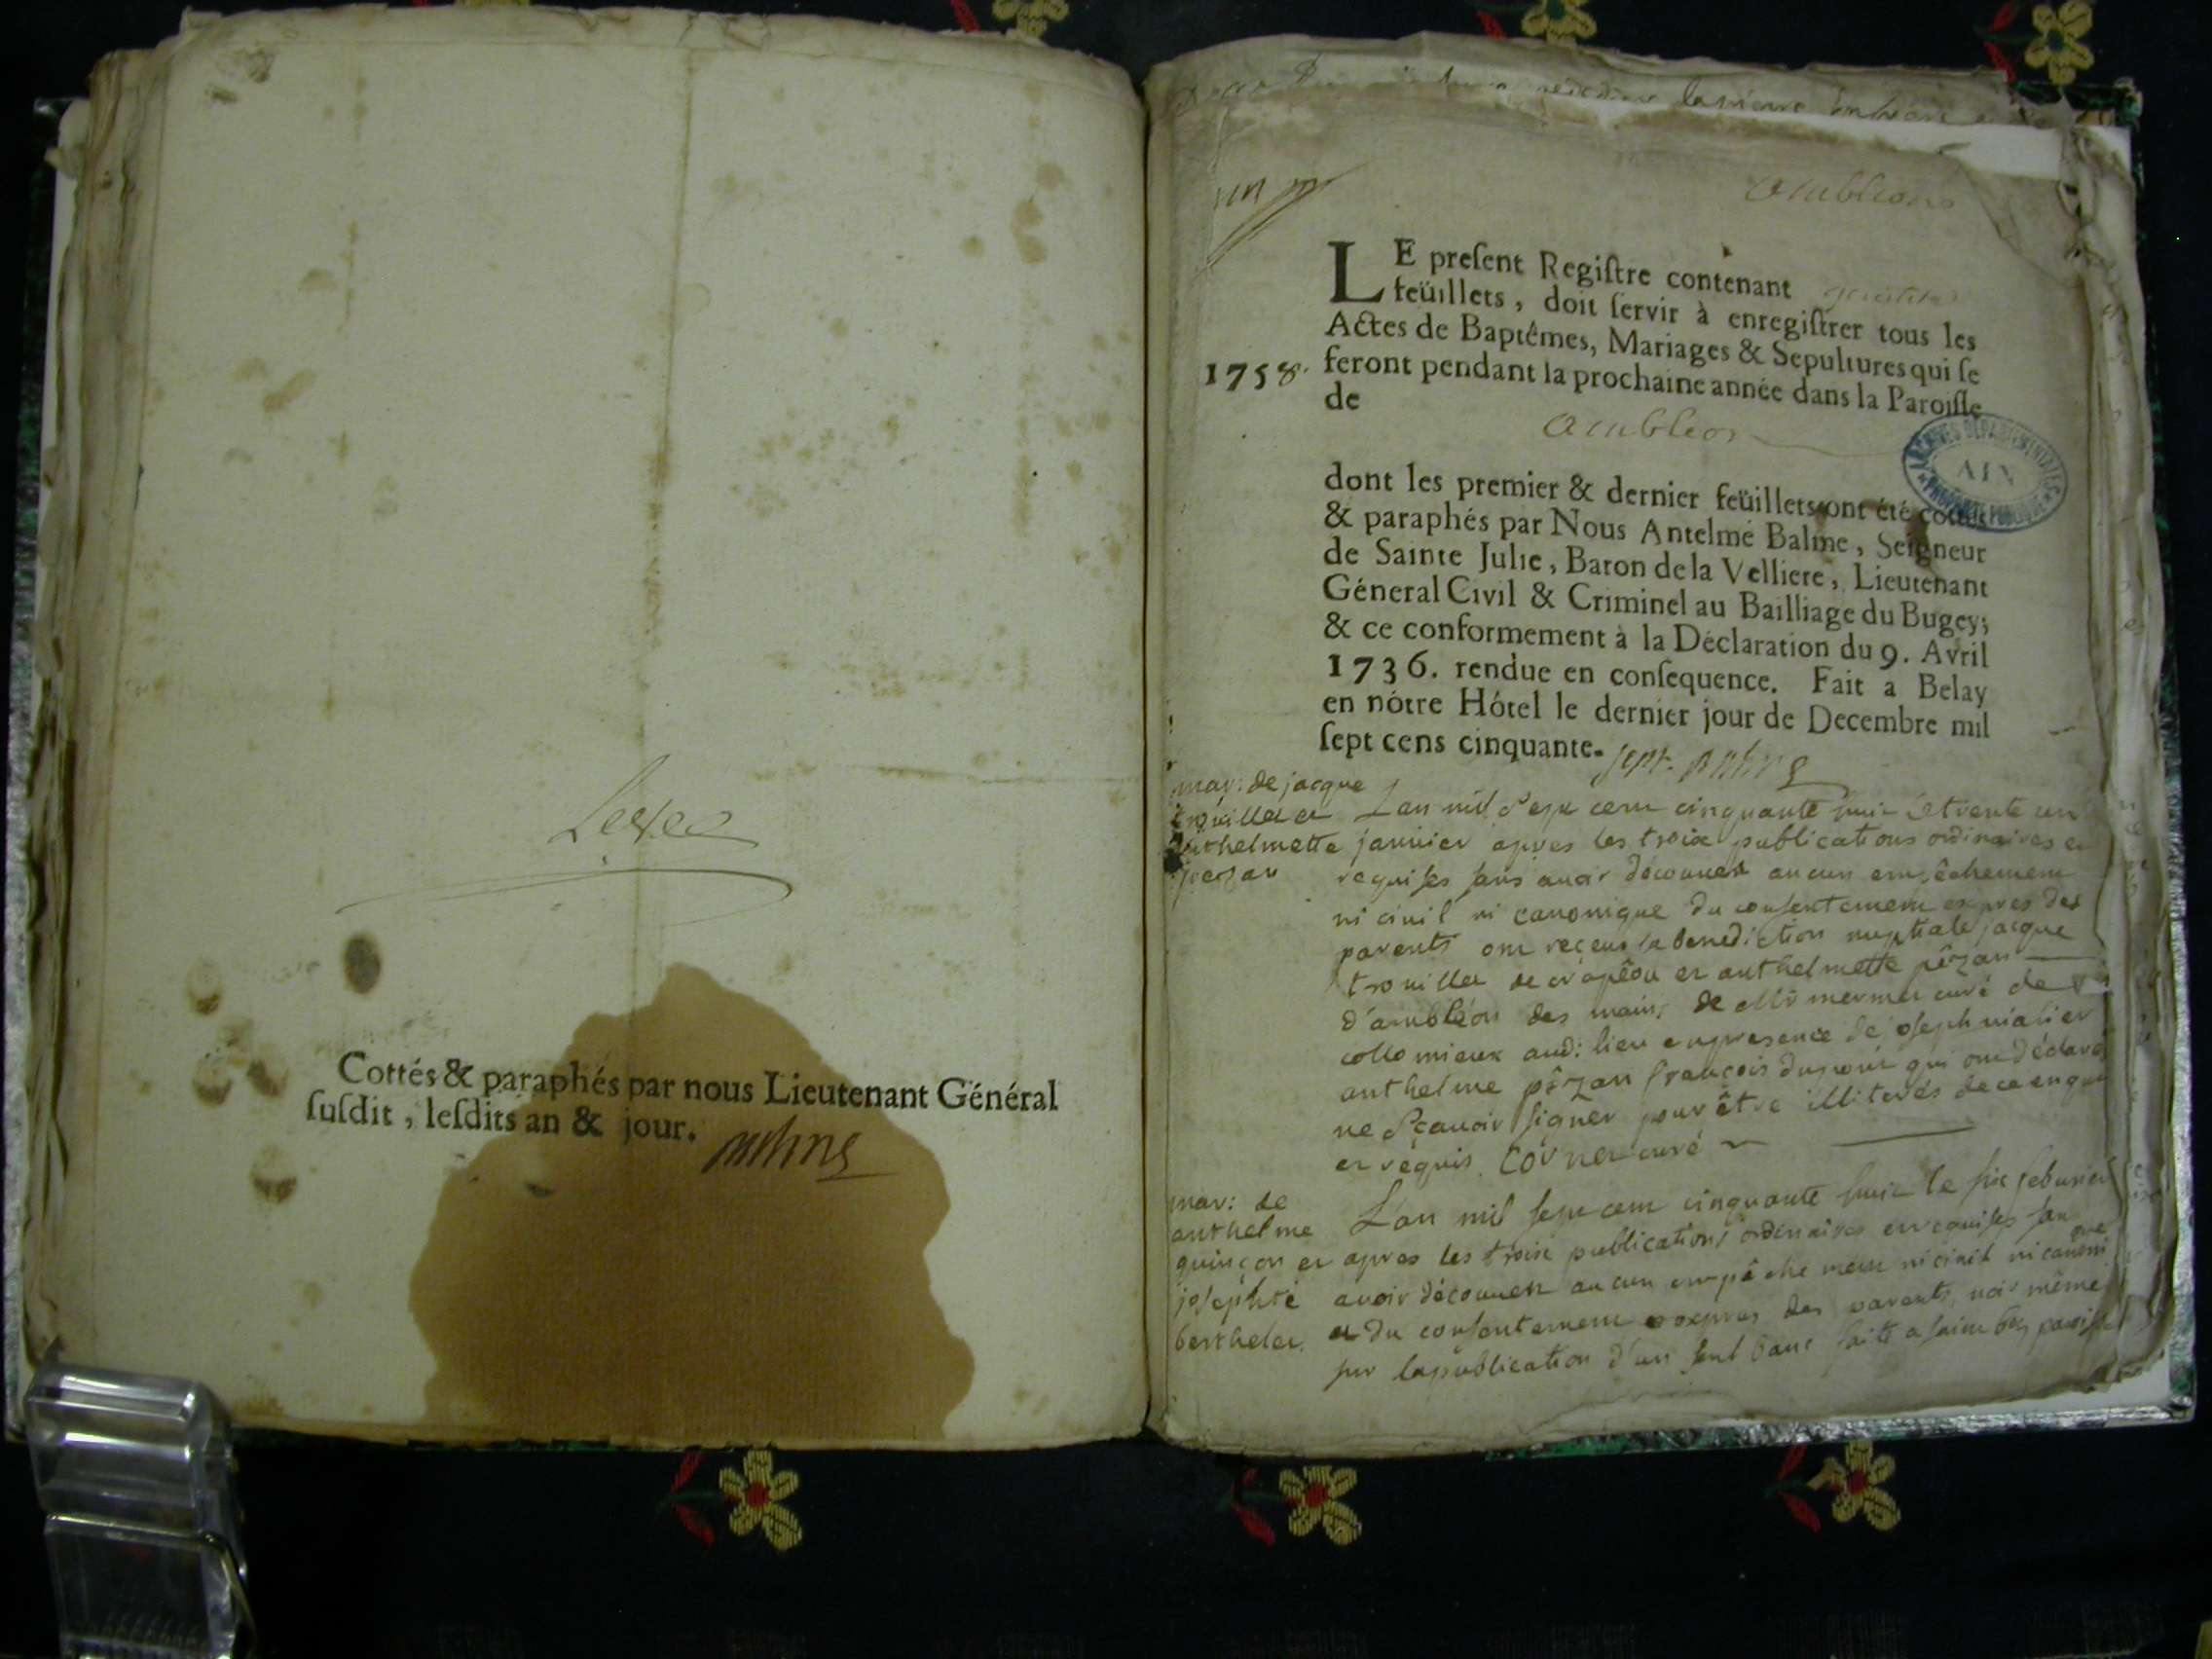 Cottés & paraphés par nous Lieutenant Général
ſuſdit, leſdits an & jour.
Ambleon
LE preſent Regiſtre contenant
feüillets, doit ſervir à enregiſtrer tous les
Actes de Baptêmes, Mariages & Sepultures qui ſe
1758. feront pendant la prochaine année dans la Paroiſſe
de
Ambleon
ARCHIVES DÉPARTEMENTALES
AIN
dont les premier & dernier feüillets ont été cottés
& paraphés par Nous Antelme Balme, Seigneur
de Sainte Julie, Baron de la Velliere, Lieutenant
Géneral Civil & Criminel au Bailliage du Bugey;
& ce conformement à la Déclaration du 9. Avril
1736. rendue en conſequence. Fait a Belay
en nôtre Hôtel le dernier jour de Decembre mil
ſept cens cinquante. sept.
mar: de jacque
trouillet et
anthelmette
L'an mil sept cent cinquante huit et trente un
janvier apres les troix publications ordinaires et
requises sans avoir découvert aucun empêchement
ni civil ni canonique du consentement expres des
parents ont reçeus la benediction nuptiale jacque
trouillet de et anthelmette pêrzan
d'ambléon des mains de Mr mermet curé de
collomieux audi: lieu en presence de joseph
anthelme pêrzan françois dupont qui ont déclaré
ne sçavoir signer pour être illiterés de ce enquis
et requis. curé
mar: de
anthelme
quinçon et
josephte
berthelet.
L'an mil sept cent cinquante huit le six febvrier
apres les troix publications ordinaires et requises sans
avoir découvert aucun empêchement ni civil ni canoni
que
et du consentement expres des parents, même
sur la publication d'un seul banc faite a saint paroisse